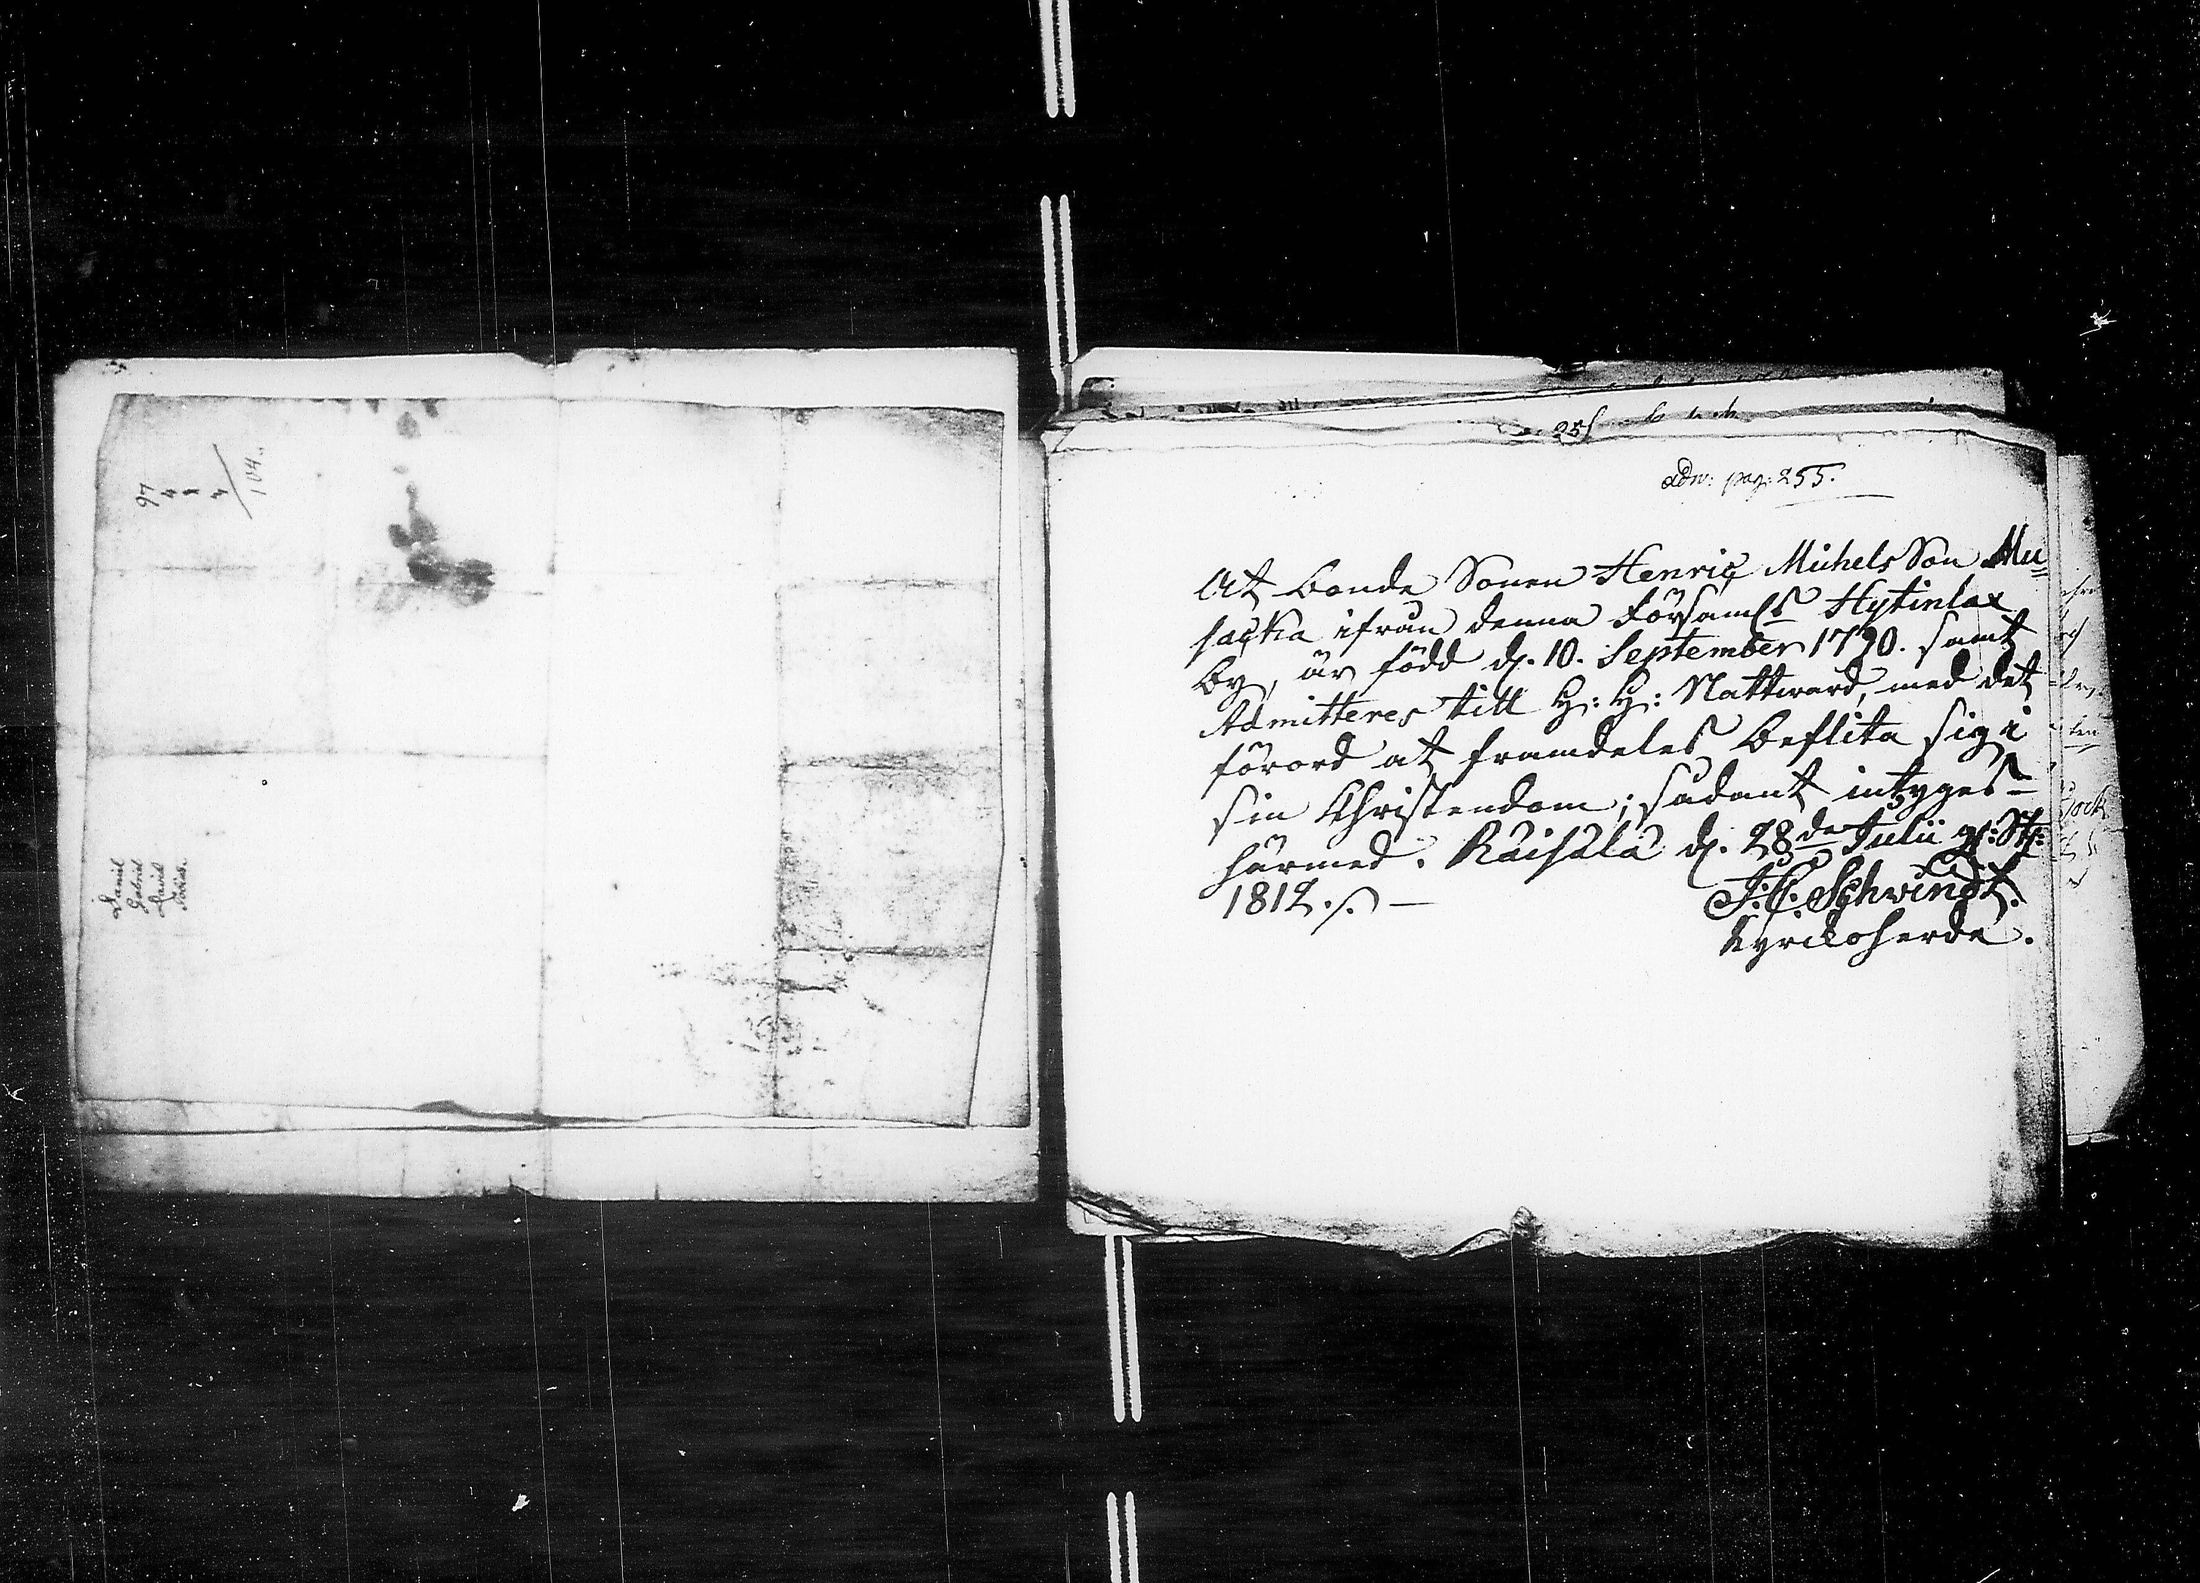 97
4
1
2
104.
Daniel
Gabriel
David
Tobias.
255
adv: pag: 255.
At Bonde Sonen Henric Michels Son Mu=
sacka ifrån denna Församls Hytinlax
By, är född d. 10. September 1790. samt
Admitteres till H: H: Nattward, med det
förord at framdeles beflita sig i
sin Christendom; sådant intyges
härmed. Räisälä d. 28de Julii gl: St:
1812. ./. —
J: C: Schwindt.
Kyrckoherde.